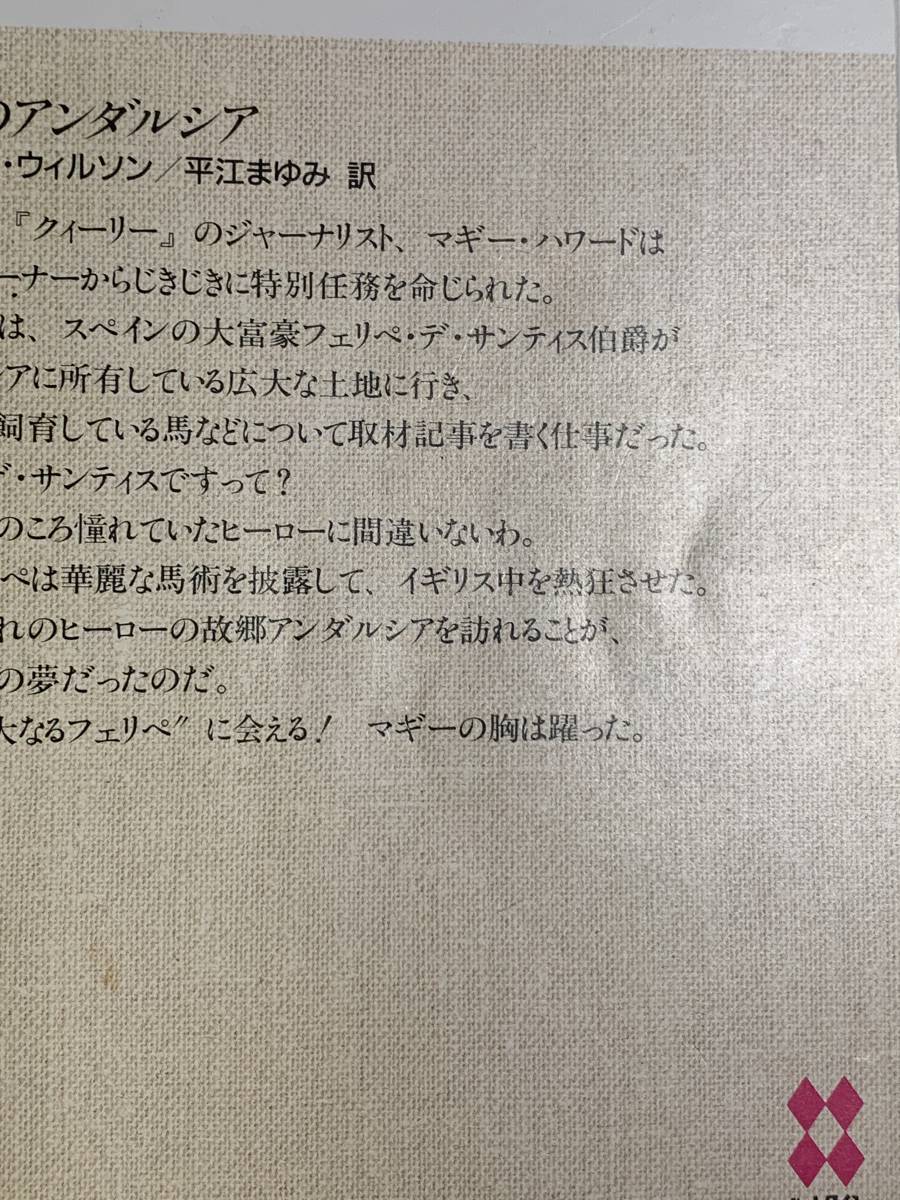 のアンダルシア
・ウィルソン/平江まゆみ 訳
『クィーリー』のジャーナリスト、マギー・ハワードは
ーナーからじきじきに特別任務を命じられた。
は、スペインの大富豪フェリペ・デ・サンティス伯爵が
シアに所有している広大な土地に行き、
飼育している馬などについて取材記事を書く仕事だった。
デ・サンティスですって?
のころ憧れていたヒーローに間違いないわ。
ペは華麗な馬術を披露して、イギリス中を熱狂させた。
れのヒーローの故郷アンダルシアを訪れることが、
の夢だったのだ。
大なるフェリペ〟に会える! マギーの胸は躍った。